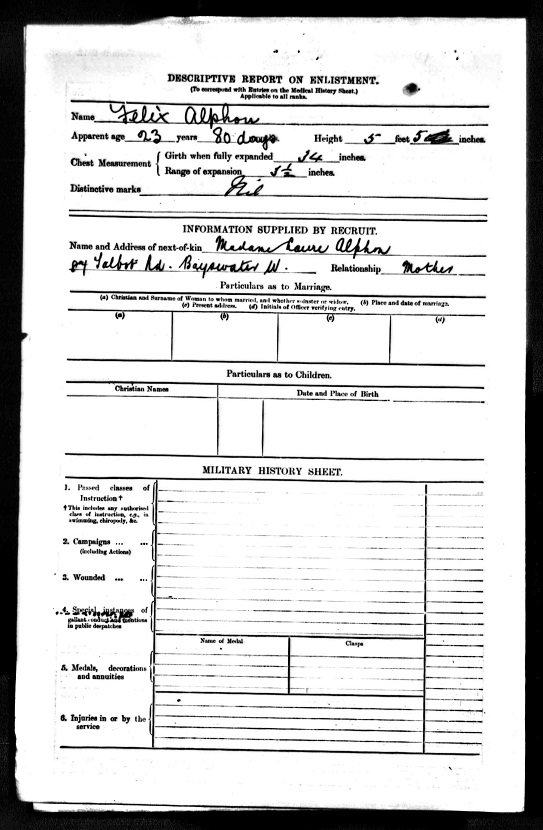 DESCRIPTIVE REPORT ON ENLISTMENT.
(To correspond with Entries on the Medical History Sheet.)
Applicable to all ranks.
Name Felix Alphon
Apparent age 23 years 80 days. Height 5 feet 5 inches.
Chest Measurement { Girth when fully expanded 34 inches.
Range of expansion 3½ inches.
Distinctive marks Nil
INFORMATION SUPPLIED BY RECRUIT.
Name and Address of next-of-kin Madame Laure Alphon
Talbot Rd. Bayswater W. Relationship Mother
Particulars as to Marriage.
(a) Christian and Surname of Woman to whom married, and whether spinster or widow. (b) Place and date of marriage.
(c) Present address. (d) Initials of Officer verifying entry.
(a) (b) (c) (d)
Particulars as to Children.
Christian Names Date and Place of Birth
MILITARY HISTORY SHEET.
1. Passed classes of
Instruction †
† This includes any authorised
class of instruction, e.g., in
swimming, chiropody, &c.
2. Campaigns ... ...
(including Actions)
3. Wounded ... ...
4. Special instances of
gallant conduct and mentions
in public despatches
Name of Medal Clasps
5. Medals, decorations
and annuities
6. Injuries in or by the
service